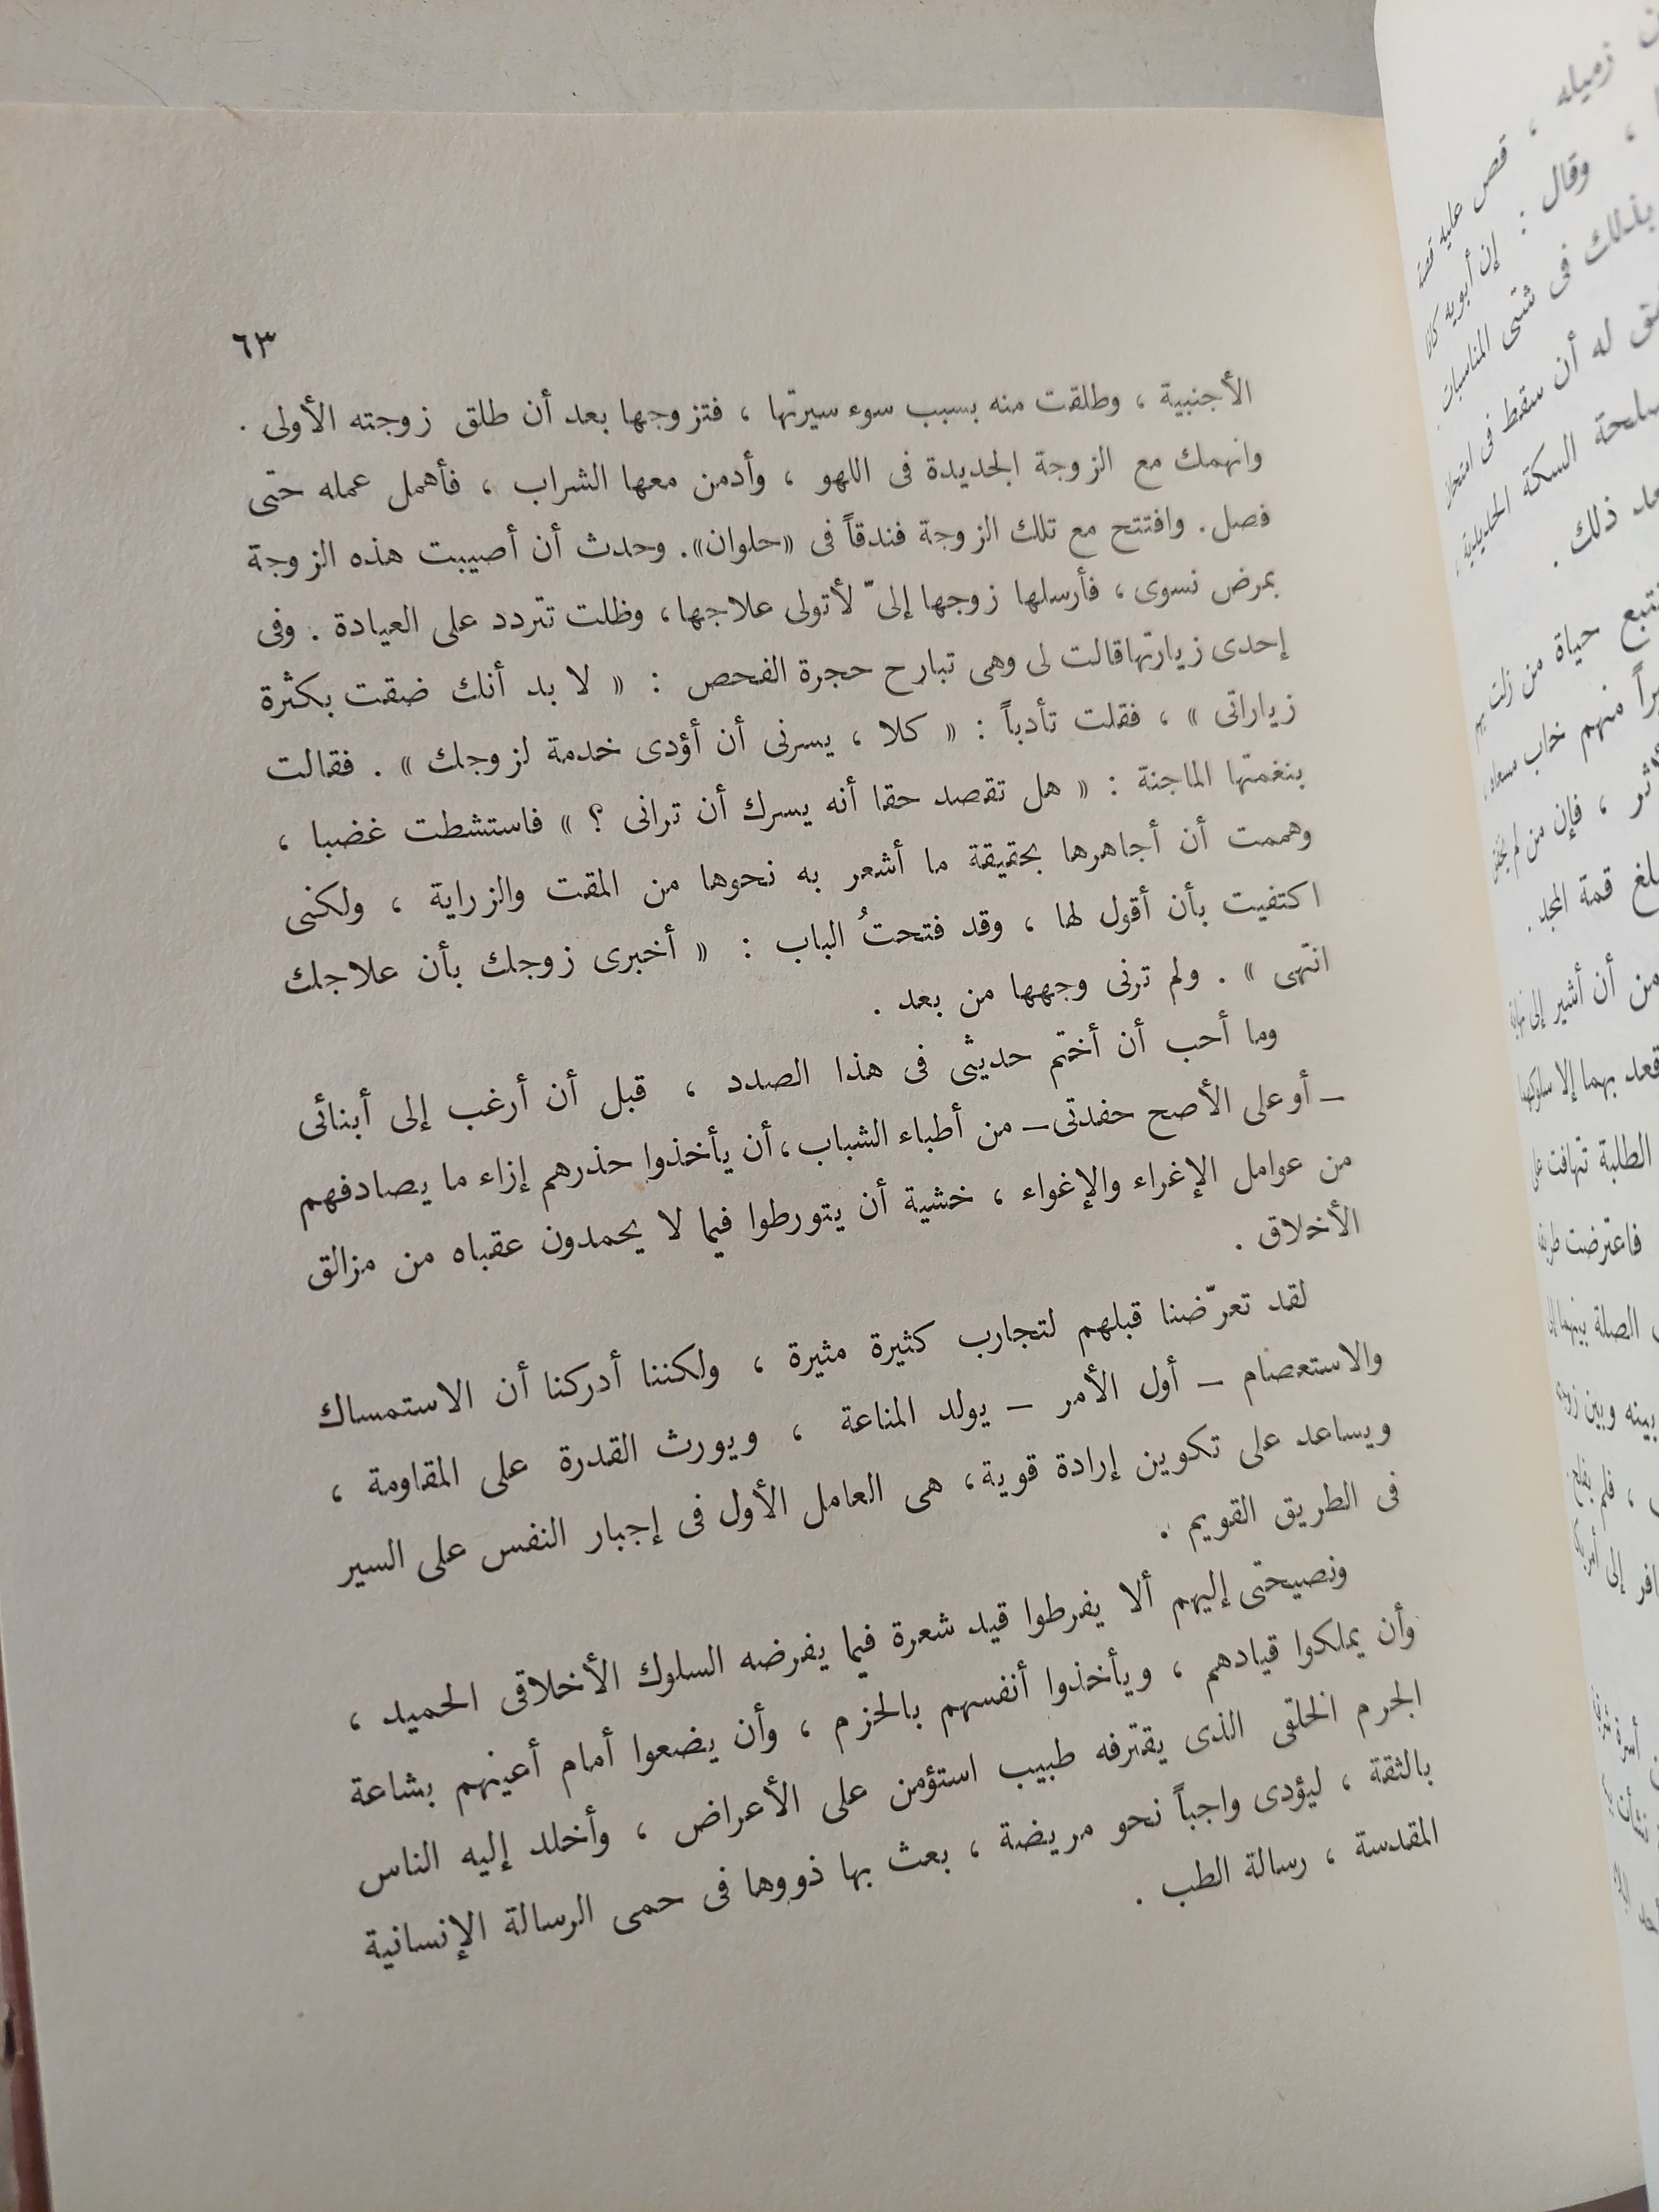 ٦٣
الأجنبية ، وطلقت منه بسبب سوء سيرتها ، فتزوجها بعد أن طلق زوجته الأولى .
وانهمك مع الزوجة الجديدة فى اللهو ، وأدمن معها الشراب ، فأهمل عمله حتى
فصل . وافتتح مع تلك الزوجة فندقاً فى «حلوان» . وحدث أن أصيبت هذه الزوجة
بمرض نسوى ، فأرسلها زوجها إلىّ لأتولى علاجها ، وظلت تتردد على العيادة . وفى
إحدى زيارتها قالت لى وهى تبارح حجرة الفحص : « لا بد أنك ضقت بكثرة
زياراتى » ، فقلت تأدباً : « كلا ، يسرنى أن أؤدى خدمة لزوجك » . فقالت
بنغمتها الماجنة : « هل تقصد حقا أنه يسرك أن ترانى ؟ » فاستشطت غضبا ،
وهممت أن أجاهرها بحقيقة ما أشعر به نحوها من المقت والزراية ، ولكنى
اكتفيت بأن أقول لها ، وقد فتحتُ الباب : « أخبرى زوجك بأن علاجك
انتهى » . ولم ترنى وجهها من بعد .
وما أحب أن أختم حديثى فى هذا الصدد ، قبل أن أرغب إلى أبنائى
– أو على الأصح حفدتى – من أطباء الشباب ، أن يأخذوا حذرهم إزاء ما يصادفهم
من عوامل الإغراء والإغواء ، خشية أن يتورطوا فيما لا يحمدون عقباه من مزالق
الأخلاق .
لقد تعرّضنا قبلهم لتجارب كثيرة مثيرة ، ولكننا أدركنا أن الاستمساك
والاستعصام – أول الأمر – يولد المناعة ، ويورث القدرة على المقاومة ،
ويساعد على تكوين إرادة قوية ، هى العامل الأول فى إجبار النفس على السير
فى الطريق القويم .
ونصيحتى إليهم ألا يفرطوا قيد شعرة فيما يفرضه السلوك الأخلاقى الحميد ،
وأن يملكوا قيادهم ، ويأخذوا أنفسهم بالحزم ، وأن يضعوا أمام أعينهم بشاعة
الجرم الخلقى الذى يقترفه طبيب استؤمن على الأعراض ، وأخلد إليه الناس
بالثقة ، ليؤدى واجباً نحو مريضة ، بعث بها ذووها فى حمى الرسالة الإنسانية
المقدسة ، رسالة الطب .
زميله ، قص عليه قصة
، وقال : إن أبويه كانا
بذلك فى شتى المناسبات
له أن سقط فى امتحان
السكة الحديدية
ذلك .
حياة من زلت بهم
منهم خاب مسعاه
، فإن من لم
قمة المجد .
من أن أشير إلى نهاية
قعد بهما إلا سلوكهما
الطلبة تهافت على
فاعترضت
الصلة بينهما
بينه وبين
، فلم
إلى